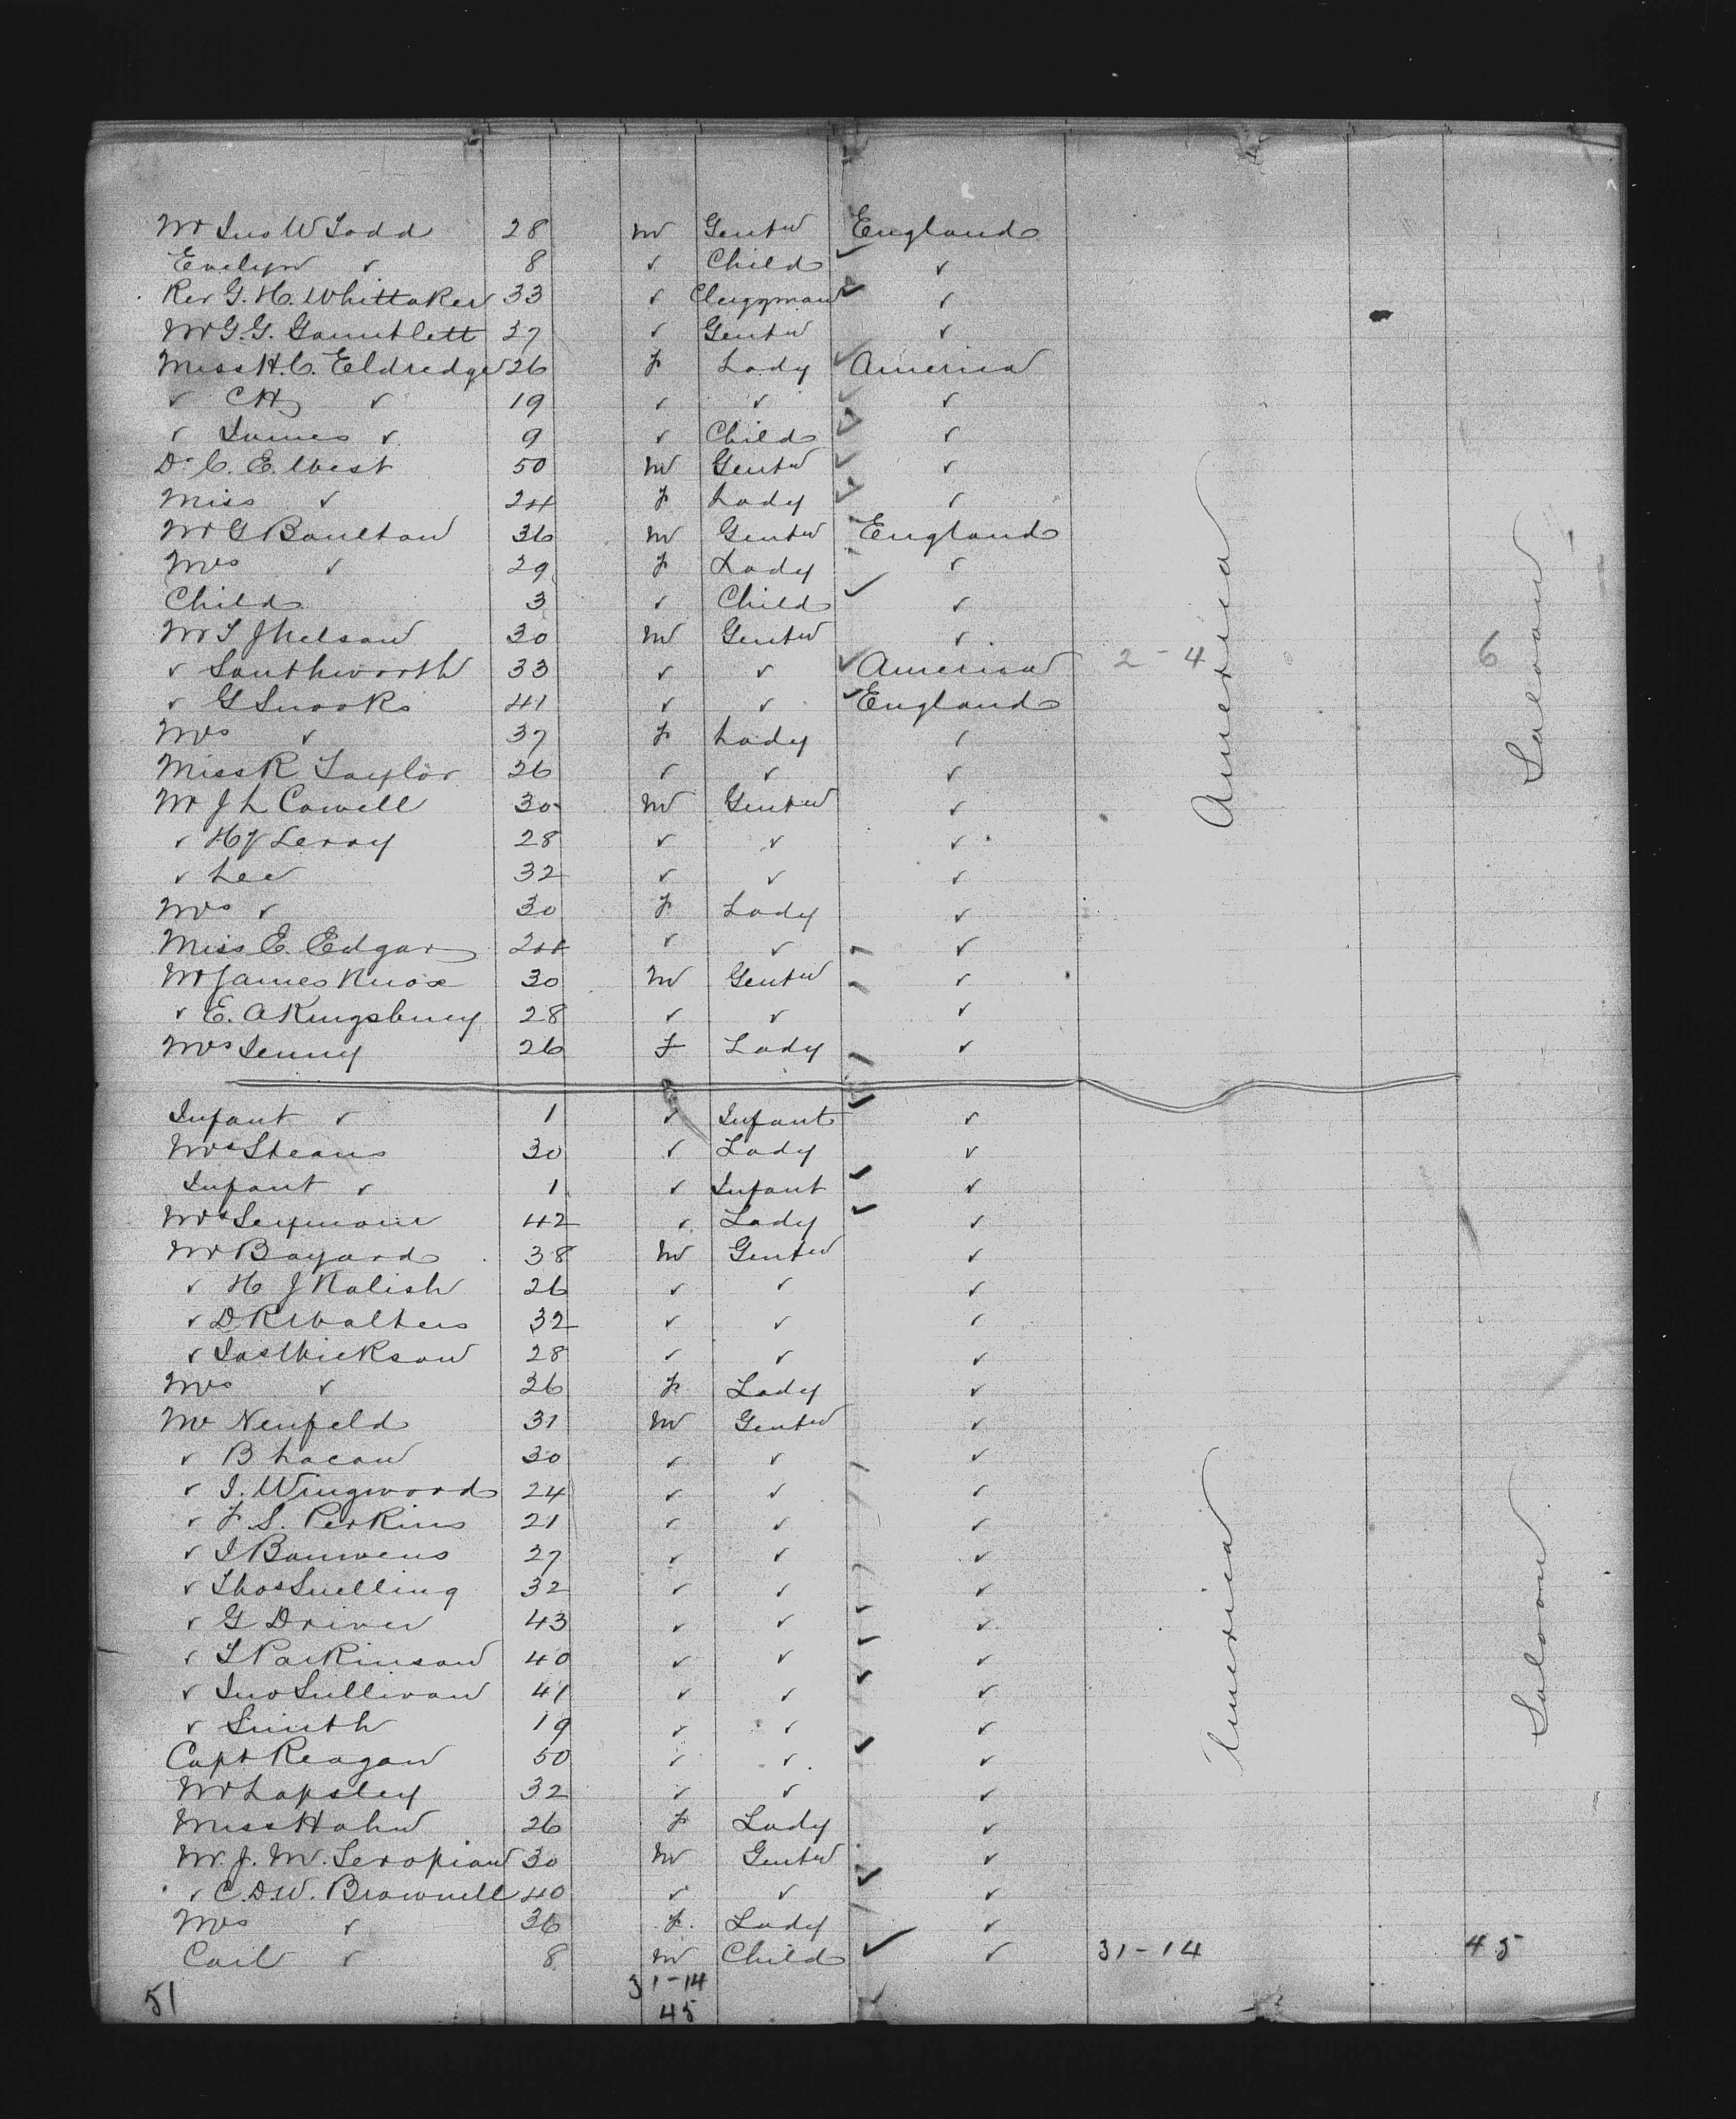 Mr Jno W Todd 28 M Gentn England
Evelyn " 8 " Child "
Rev G. H. Whittaker 33 " Clergyman "
Mr G. G. Gauntlett 37 " Gentn "
Miss H. C. Eldredge 26 F Lady America
" C H " 19 " " "
" James " 9 " Child "
Dr C. E. West 50 M Gentn "
Miss " 24 F Lady "
Mr G Boulton 36 M Gentn England
Mrs " 29 F Lady "
Child 3 " Child "
Mr T J Nelson 30 M Gentn "
" Southworth 33 " " America 2-4 6
" G Snooks 41 " " England
Mrs " 37 F Lady "
Miss R Taylor 26 " " "
Mr J L Cowell 30 M Gentn "
" H J Leroy 28 " " "
" Lee 32 " " "
Mrs " 30 F Lady "
Miss E. Edgar 24 " " "
Mr James Knox 30 M Gentn "
" E. A Kingsbury 28 " " "
Mrs Jenny 26 F Lady "
America
Saloon
Infant " 1 " Infant "
Mrs Stearns 30 " Lady "
Infant " 1 " Infant "
Mrs Seymour 42 " Lady "
Mr Bayard 38 M Gentn "
" H J Kalish 26 " " "
" D R Walters 32 " " "
" Jas Hickson 28 " " "
Mrs " 26 F Lady "
Mr Neufeld 31 M Gentn "
" B Lacan 30 " " "
" J. Wingwood 24 " " "
" F. S. Perkins 21 " " "
" J Bauwens 27 " " "
" Thos Snelling 32 " " "
" G Driver 43 " " "
" T Parkinson 40 " " "
" Jno Sullivan 41 " " "
" Smith 19 " " "
Capt Reagan 50 " " "
Mr Lapsley 32 " " "
Miss Hahn 26 F Lady "
Mr. J. M. Seropian 30 M Gentn "
" C. D. W. Brownell 40 " " "
Mrs " 36 F. Lady "
Carl " 8 M Child " 31-14 45
America
Saloon
51 31-14
45